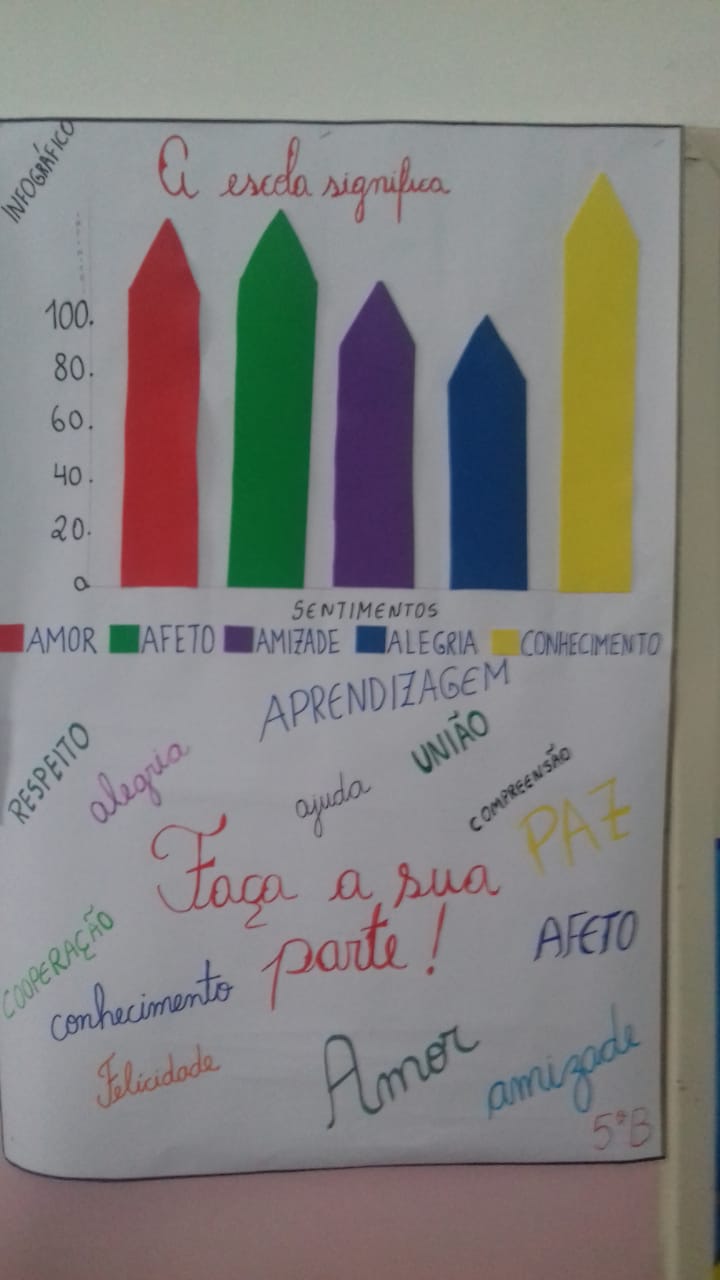 INFOGRÁFICO
A escola significa
100.
80.
60.
40.
20.
0
SENTIMENTOS
AMOR AFETO AMIZADE ALEGRIA CONHECIMENTO
APRENDIZAGEM
RESPEITO
alegria
ajuda
UNIÃO
COMPREENSÃO
PAZ
Faça a sua
parte!
COOPERAÇÃO
conhecimento
AFETO
Felicidade
Amor
amizade
5ºB